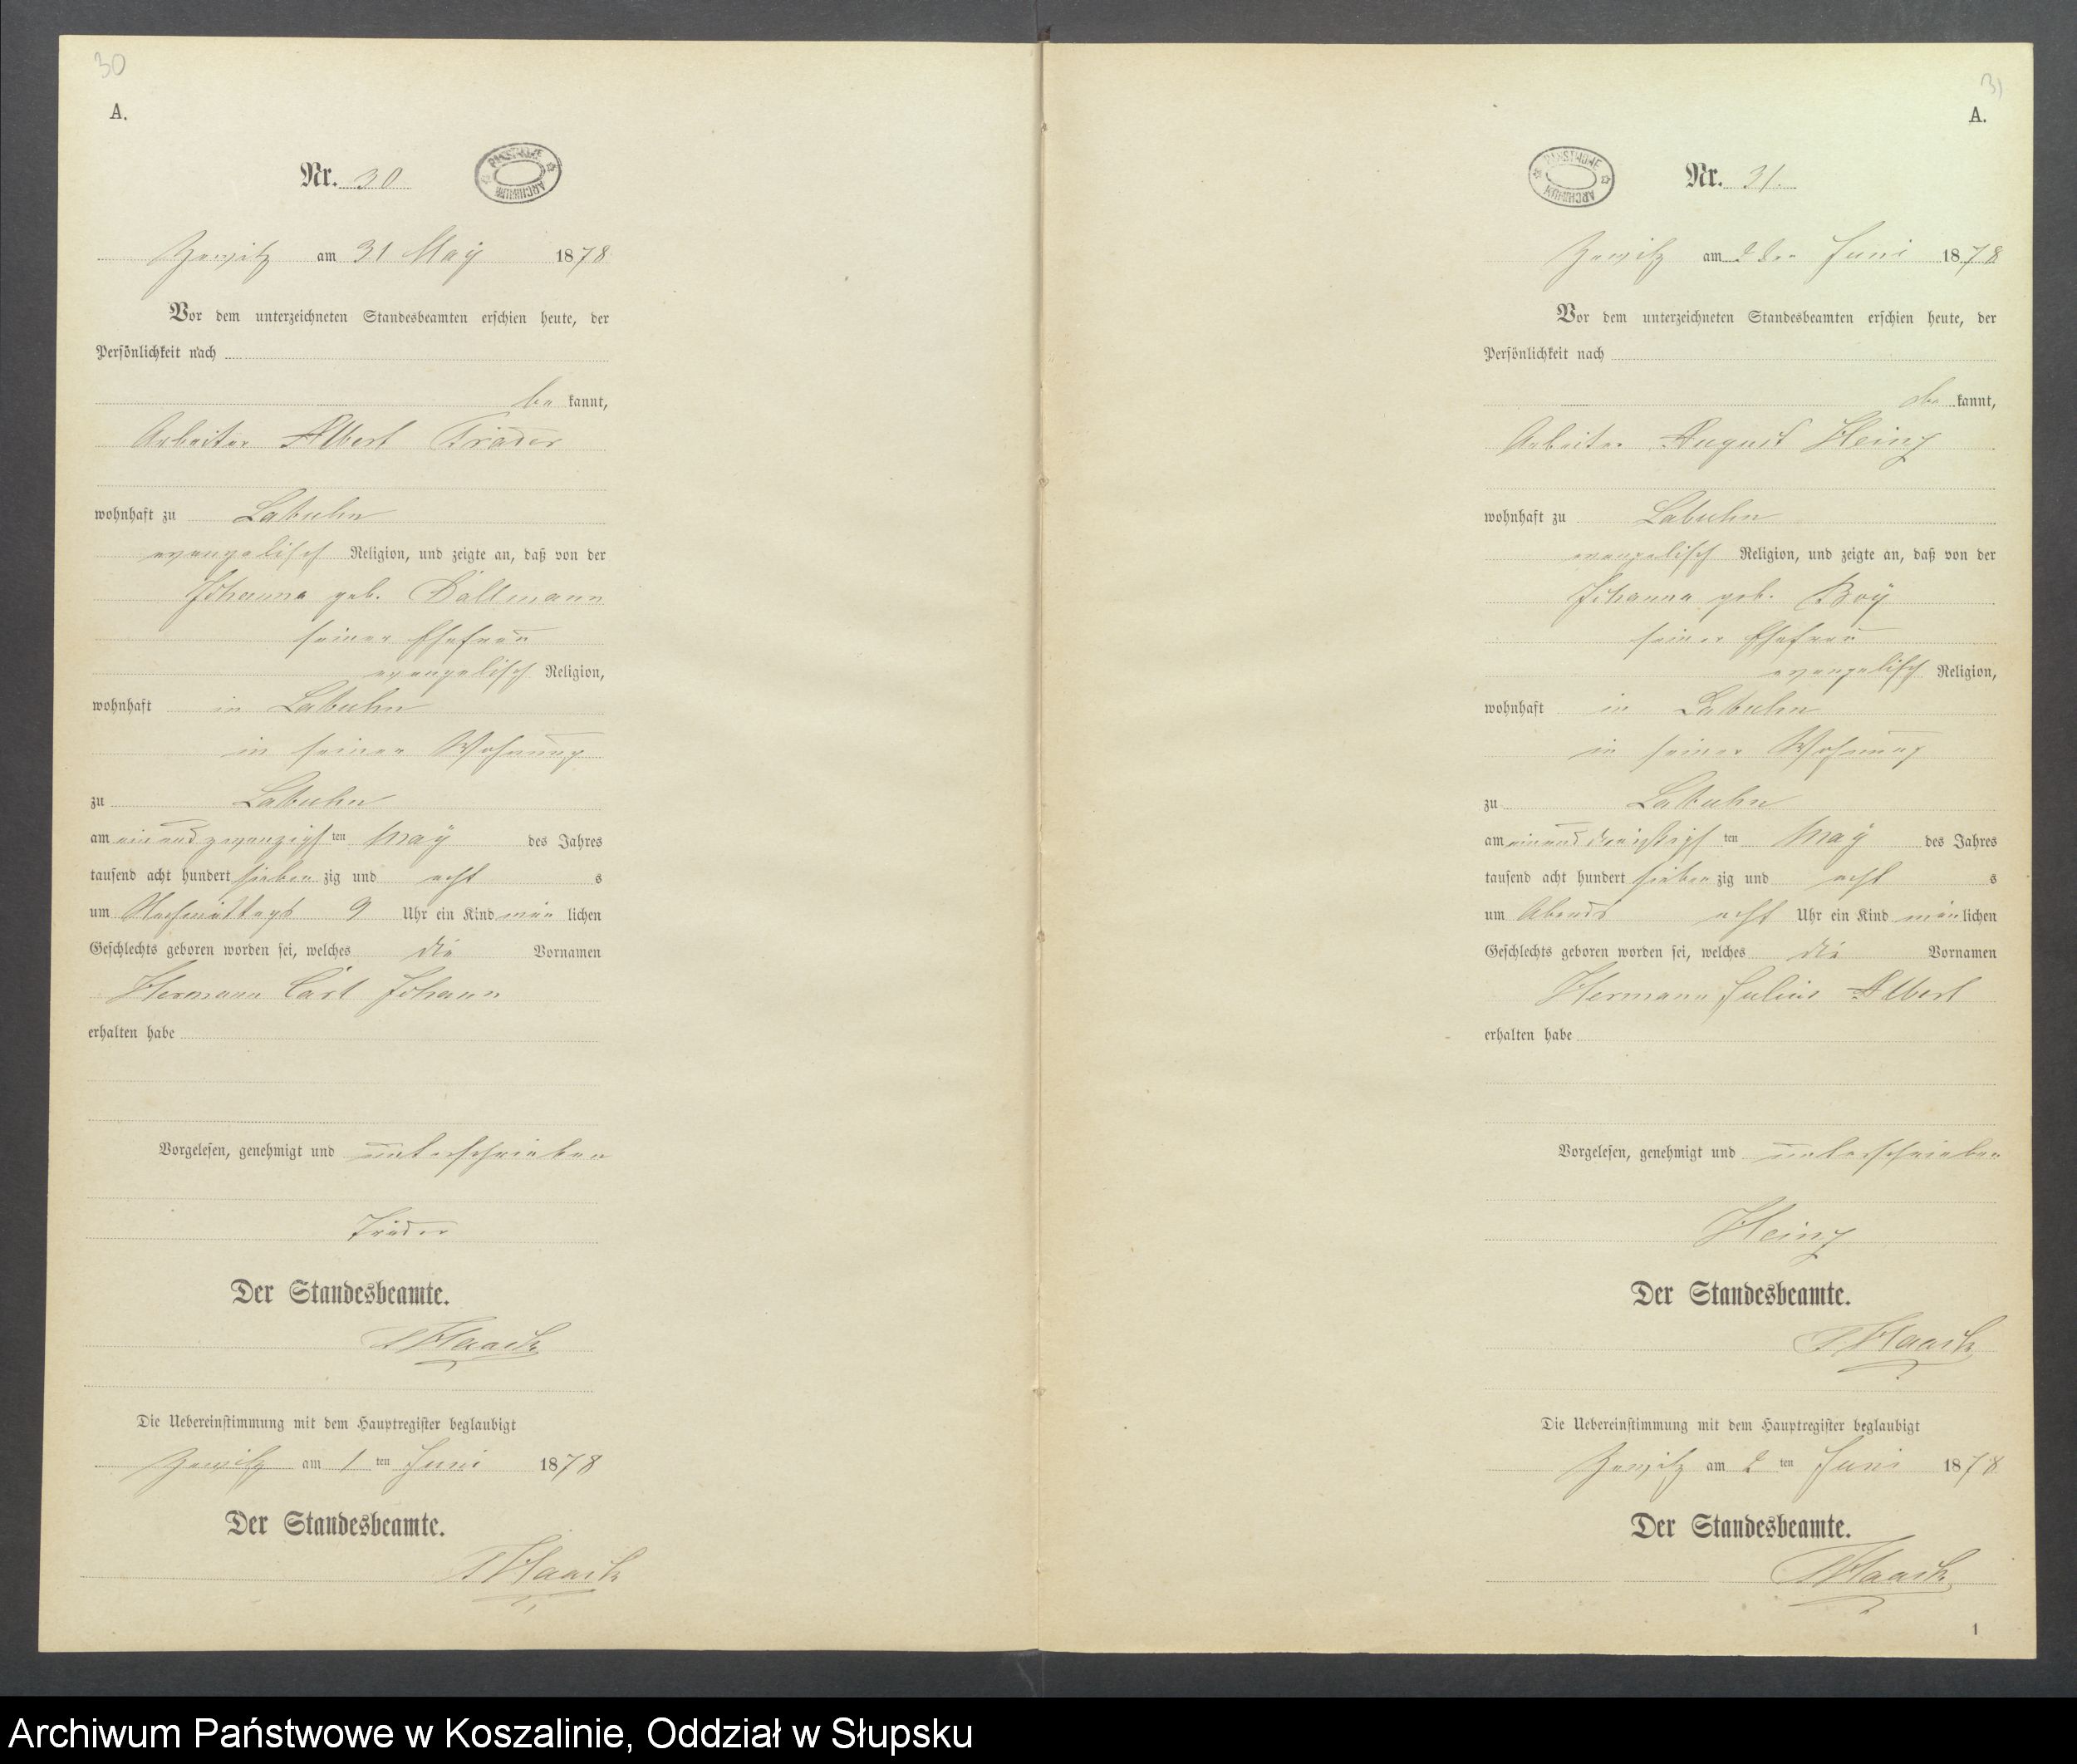 30
A.
Nr. 30
PAŃSTWOWE ARCHIWUM
Zewitz am 31 May 1878
Vor dem unterzeichneten Standesbeamten erschien heute, der
Persönlichkeit nach
be kannt,
Arbeiter Albert Träder
wohnhaft zu Labuhn
evangelisch Religion, und zeigte an, daß von der
Johanna geb. Dallmann
seiner Ehefrau
evangelisch Religion,
wohnhaft in Labuhn
in seiner Wohnung
zu Labuhn
am einundzwanzigsten May des Jahres
tausend acht hundert sieben zig und acht s
um Nachmittags 9 Uhr ein Kind män lichen
Geschlechts geboren worden sei, welches die Vornamen
Hermann Carl Johann
erhalten habe
Vorgelesen, genehmigt und unterschrieben
Träder
Der Standesbeamte.
Haack
Die Uebereinstimmung mit dem Hauptregister beglaubigt
Zewitz am 1 ten Juni 1878
Der Standesbeamte.
Haack
31
A.
PAŃSTWOWE ARCHIWUM
Nr. 31.
Zewitz am 2 den Juni 1878
Vor dem unterzeichneten Standesbeamten erschien heute, der
Persönlichkeit nach
be kannt,
Arbeiter August Heinz
wohnhaft zu Labuhn
evangelisch Religion, und zeigte an, daß von der
Johanna geb. Boÿ
seiner Ehefrau
evangelisch Religion,
wohnhaft in Labuhn
in seiner Wohnung
zu Labuhn
am einunddreißigsten May des Jahres
tausend acht hundert sieben zig und acht s
um Abends acht Uhr ein Kind män lichen
Geschlechts geboren worden sei, welches die Vornamen
Hermann Julius Albert
erhalten habe
Vorgelesen, genehmigt und unterschrieben
Heinz
Der Standesbeamte.
Haack
Die Uebereinstimmung mit dem Hauptregister beglaubigt
Zewitz am 2 ten Juni 1878
Der Standesbeamte.
Haack
1
Archiwum Państwowe w Koszalinie, Oddział w Słupsku